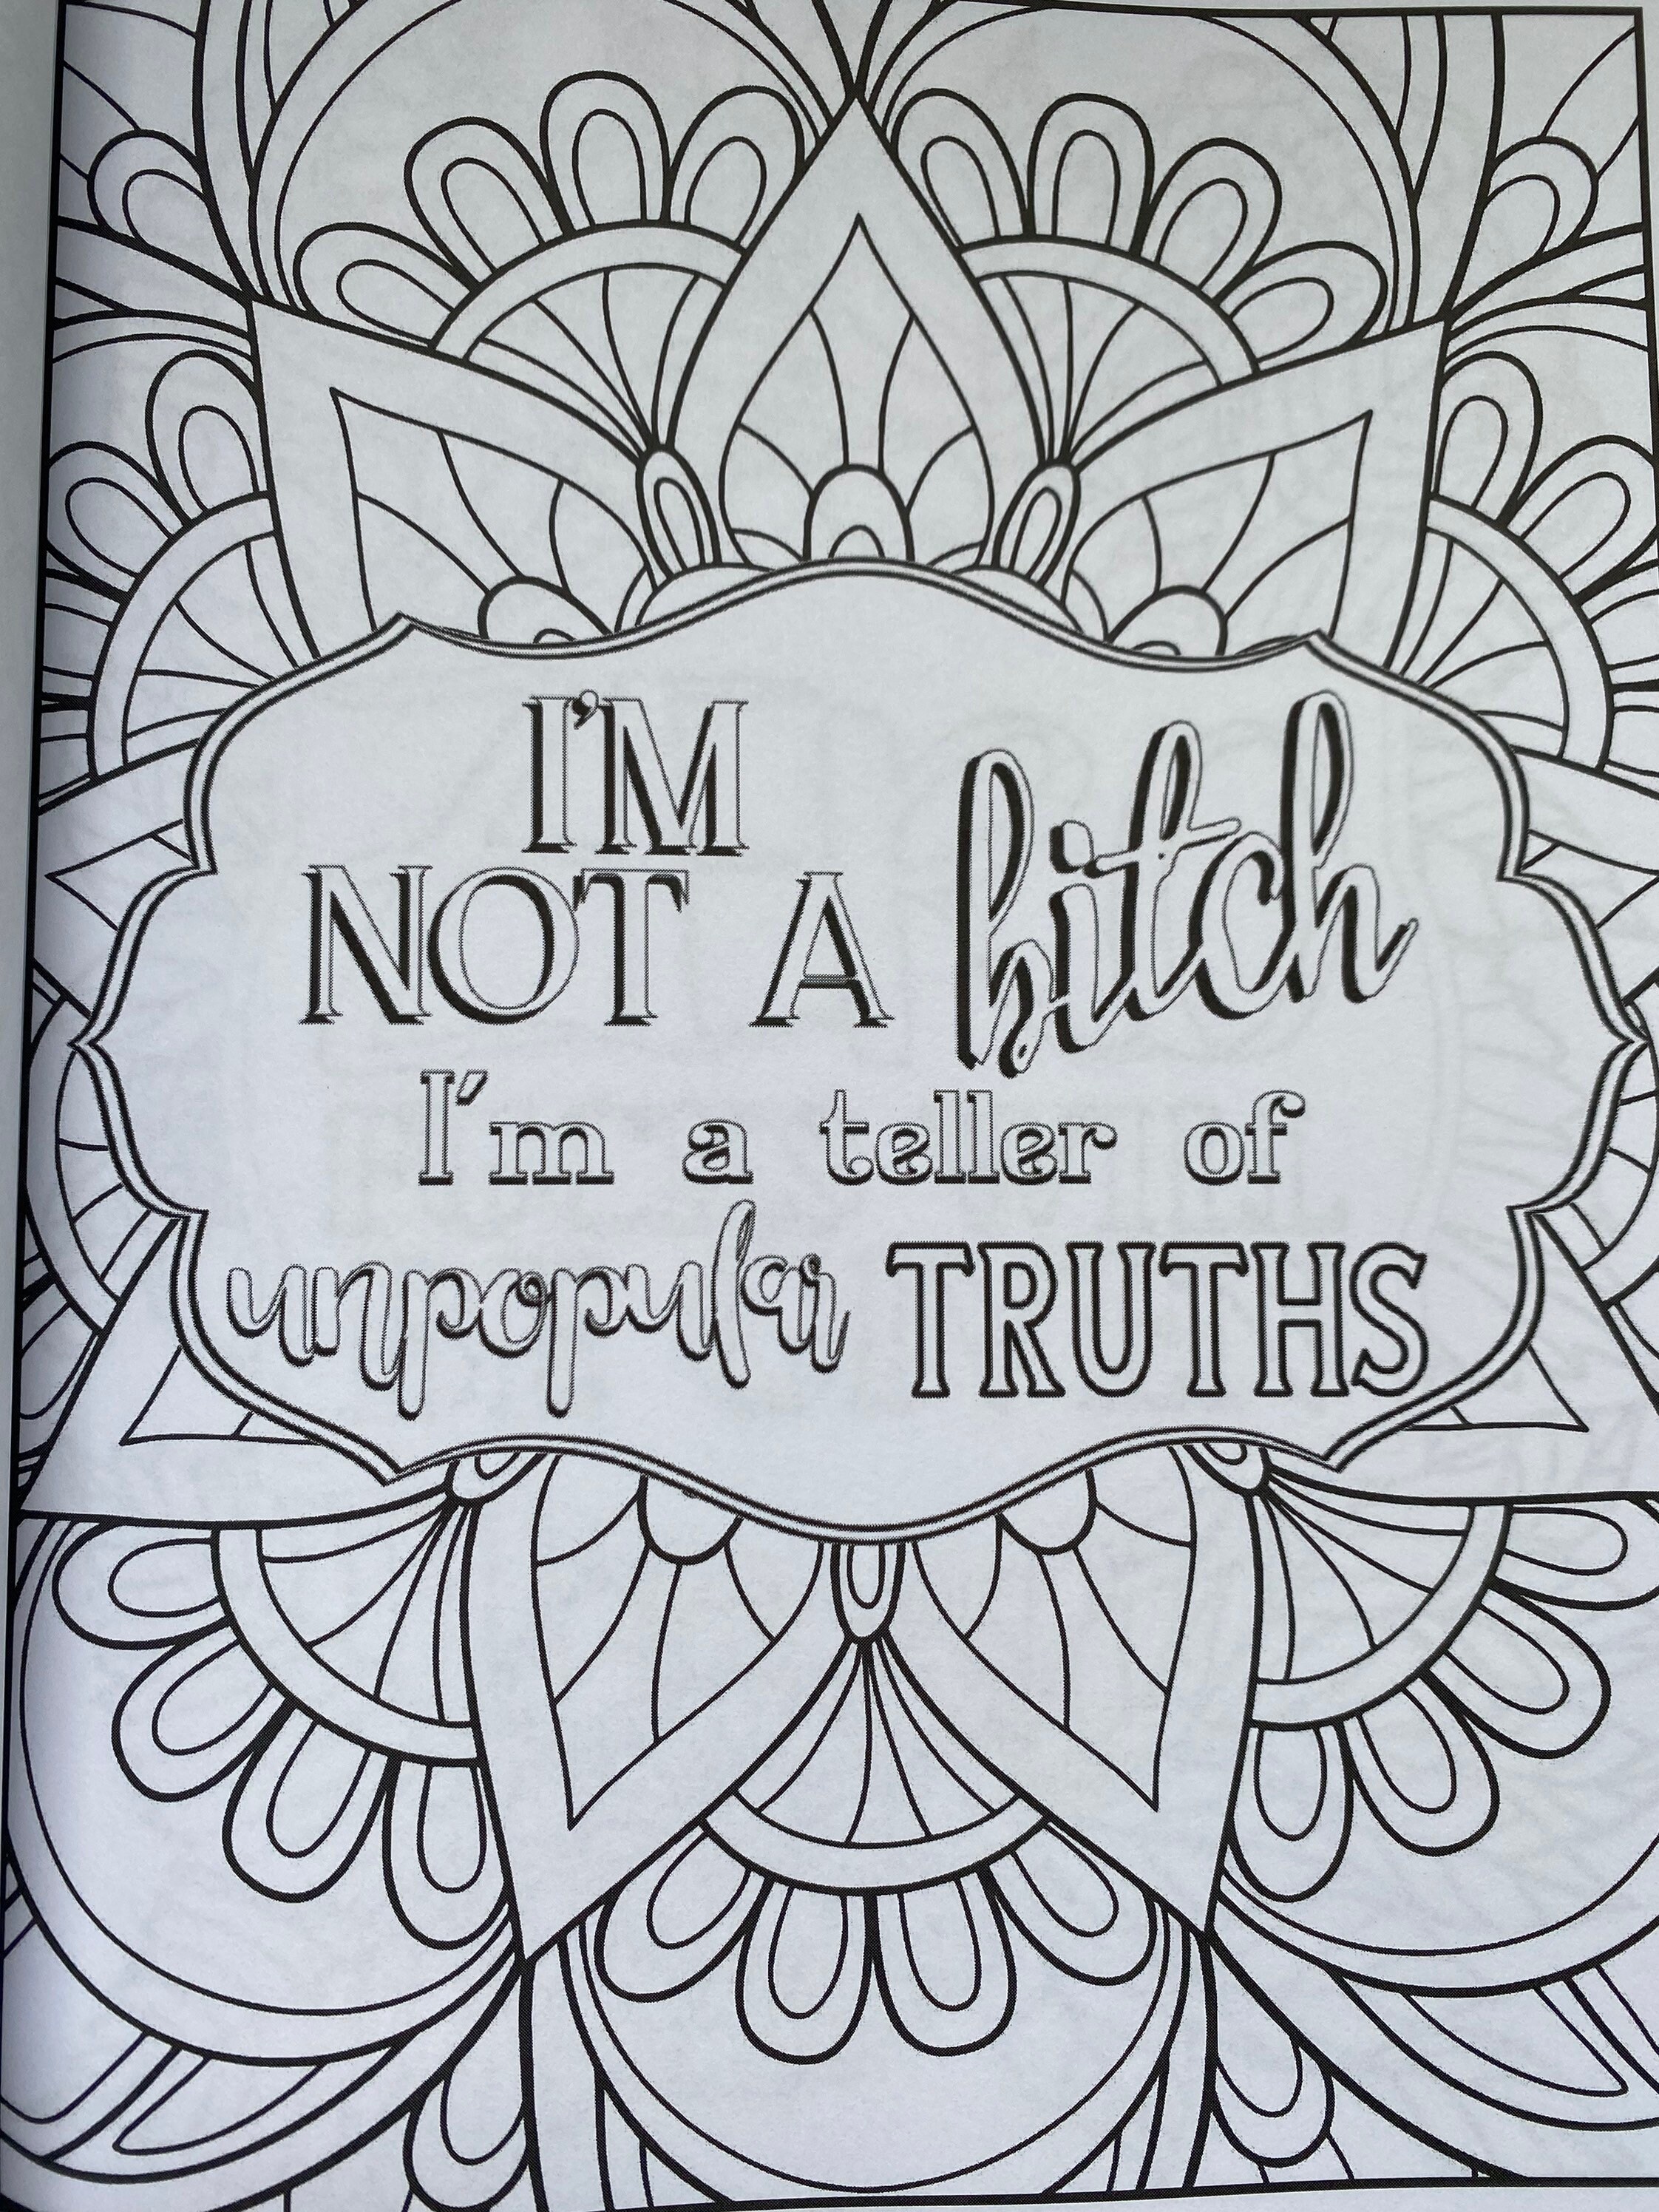 I'M
NOT A bitch
I'm a teller of
unpopular TRUTHS